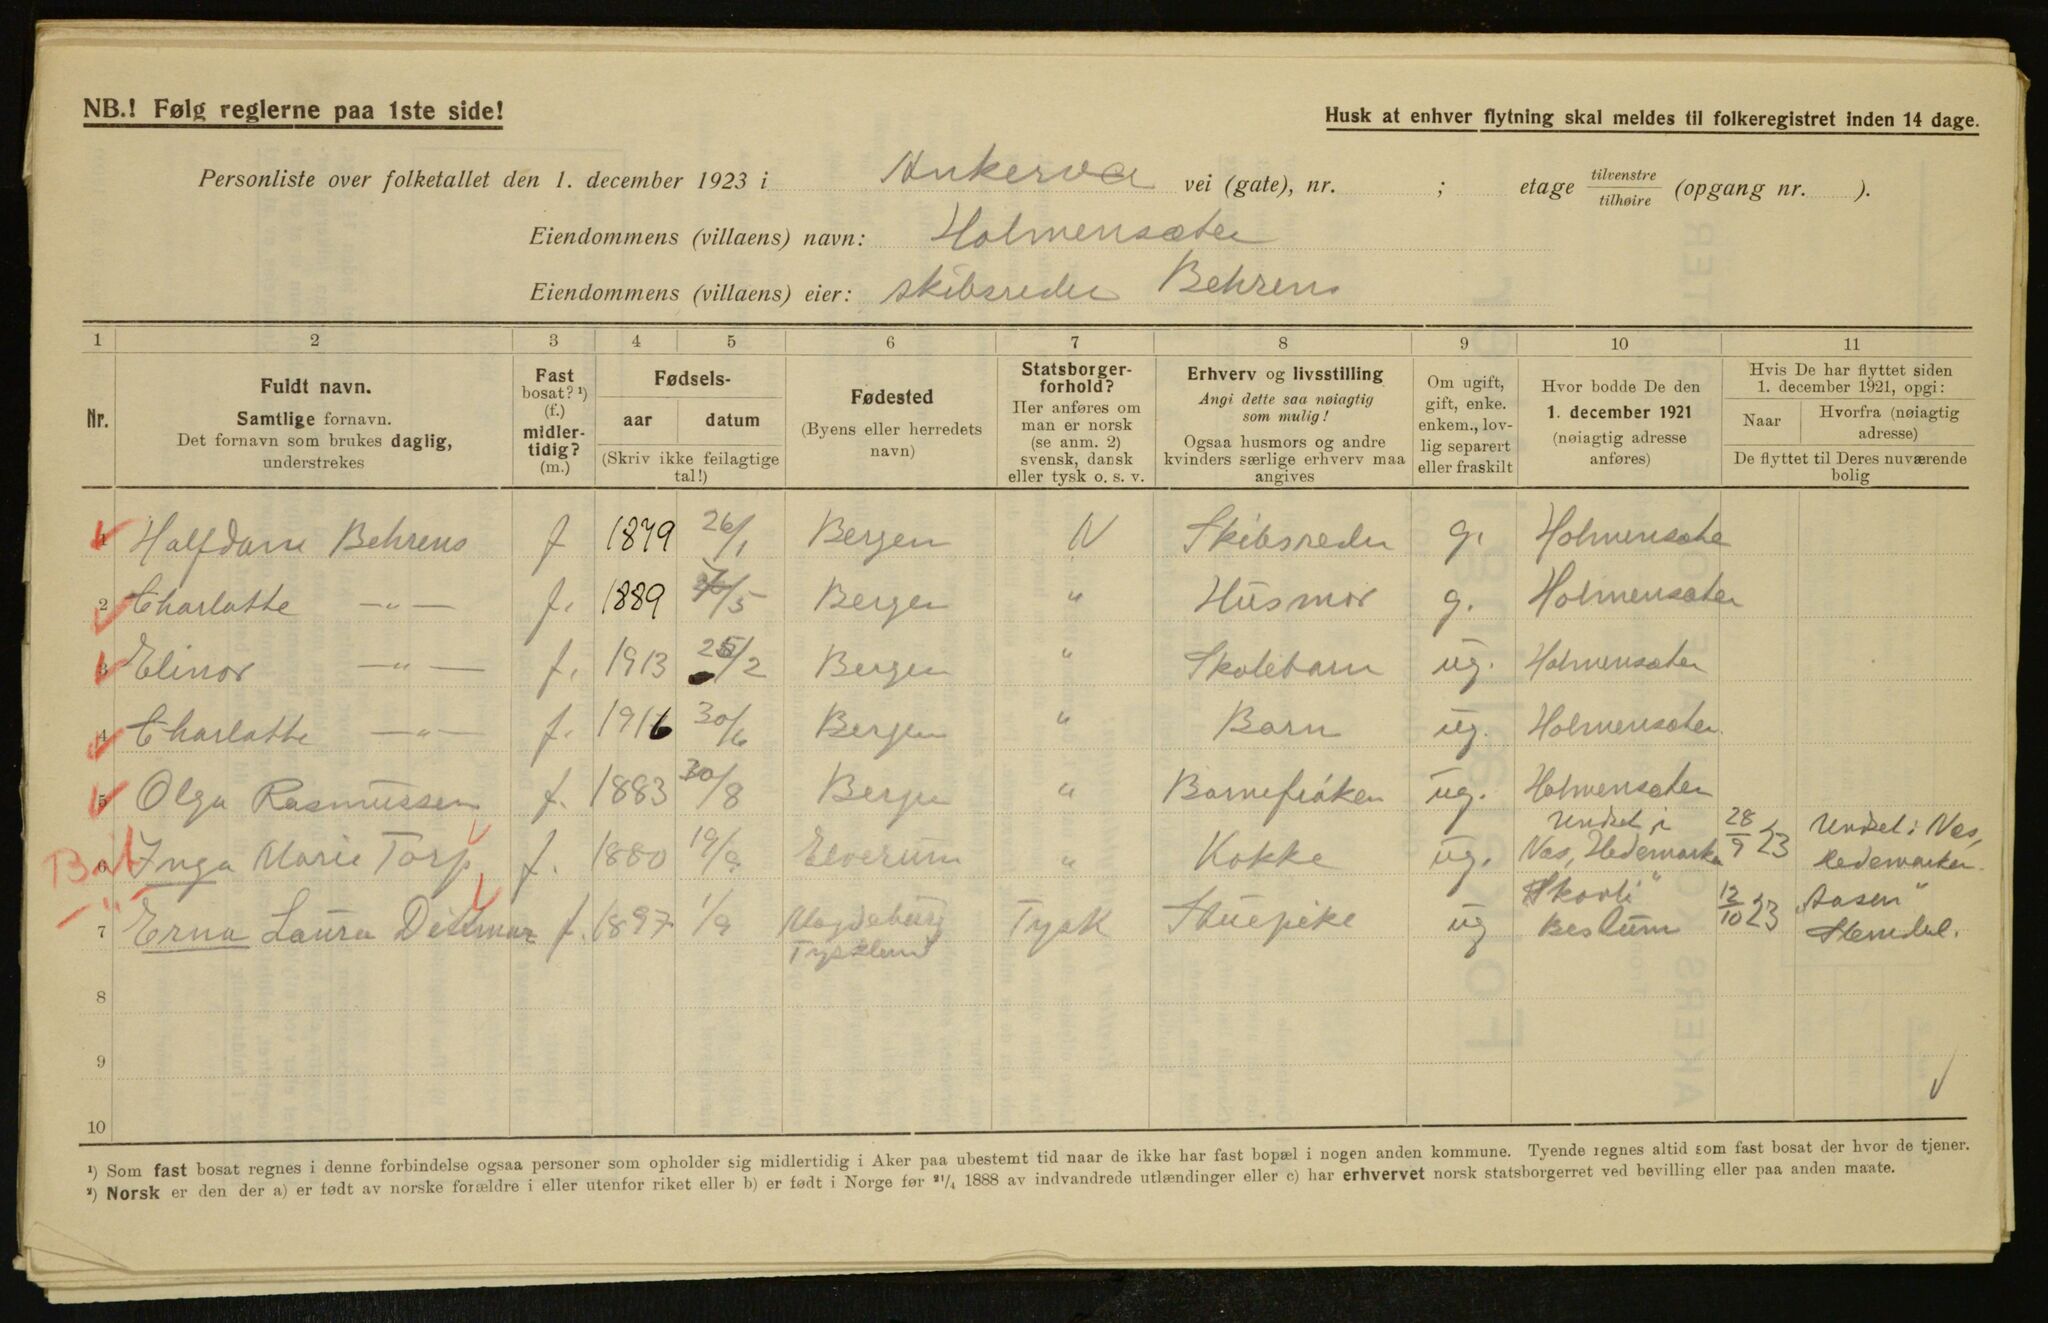 NB.! Følg reglerne paa 1ste side!
Husk at enhver flytning skal meldes til folkeregistret inden 14 dage.
Personliste over folketallet den 1. december 1923 i Ankerve vei (gate), nr. ; etage tilvenstre/tilhøire (opgang nr. ).
Eiendommens (villaens) navn: Holmensæter
Eiendommens (villaens) eier: skibsreder Behrens
1 2 3 4 5 6 7 8 9 10 11
Nr.
Fuldt navn.
Samtlige fornavn.
Det fornavn som brukes daglig,
understrekes
Fast
bosat? ¹)
(f.)
midler-
tidig?
(m.)
Fødsels-
aar datum
(Skriv ikke feilagtige
tal!)
Fødested
(Byens eller herredets
navn)
Statsborger-
forhold?
Her anføres om
man er norsk
(se anm. 2)
svensk, dansk
eller tysk o. s. v.
Erhverv og livsstilling
Angi dette saa nøiagtig
som mulig!
Ogsaa husmors og andre
kvinders særlige erhverv maa
angives
Om ugift,
gift, enke.
enkem., lov-
lig separert
eller fraskilt
Hvor bodde De den
1. december 1921
(nøiagtig adresse
anføres)
Hvis De har flyttet siden
1. december 1921, opgi:
Naar Hvorfra (nøiagtig
adresse)
De flyttet til Deres nuværende
bolig
1 Halfdan Behrens f 1879 26/1 Bergen N Skibsreder g. Holmensæter
2 Charlotte —"— f. 1889 7/5 Bergen " Husmor g. Holmensæter
3 Elinor —"— f. 1913 25/2 Bergen " Skolebarn ug. Holmensæter
4 Charlotte —"— f. 1916 30/6 Bergen " Barn ug. Holmensæter.
5 Olga Rasmussen f. 1883 30/8 Bergen " Barnefrøken ug. Holmensæter
6 Inga Marie Torp f. 1880 19/9 Elverum " Kokke ug. Undset i Nes, Hedemarken 28/9 23 Undset i Nes, Hedemarken.
7 Erna Laura Dittmar f. 1897 1/9 Magdeburg Tyskland Tysk Stuepike ug "Skovli" Bestum 12/10 23 "Aasen" Slemdal.
8
9
10
¹) Som fast bosat regnes i denne forbindelse ogsaa personer som opholder sig midlertidig i Aker paa ubestemt tid naar de ikke har fast bopæl i nogen anden kommune. Tyende regnes altid som fast bosat der hvor de tjener.
²) Norsk er den der a) er født av norske forældre i eller utenfor riket eller b) er født i Norge før 21/4 1888 av indvandrede utlændinger eller c) har erhvervet norsk statsborgerret ved bevilling eller paa anden maate.